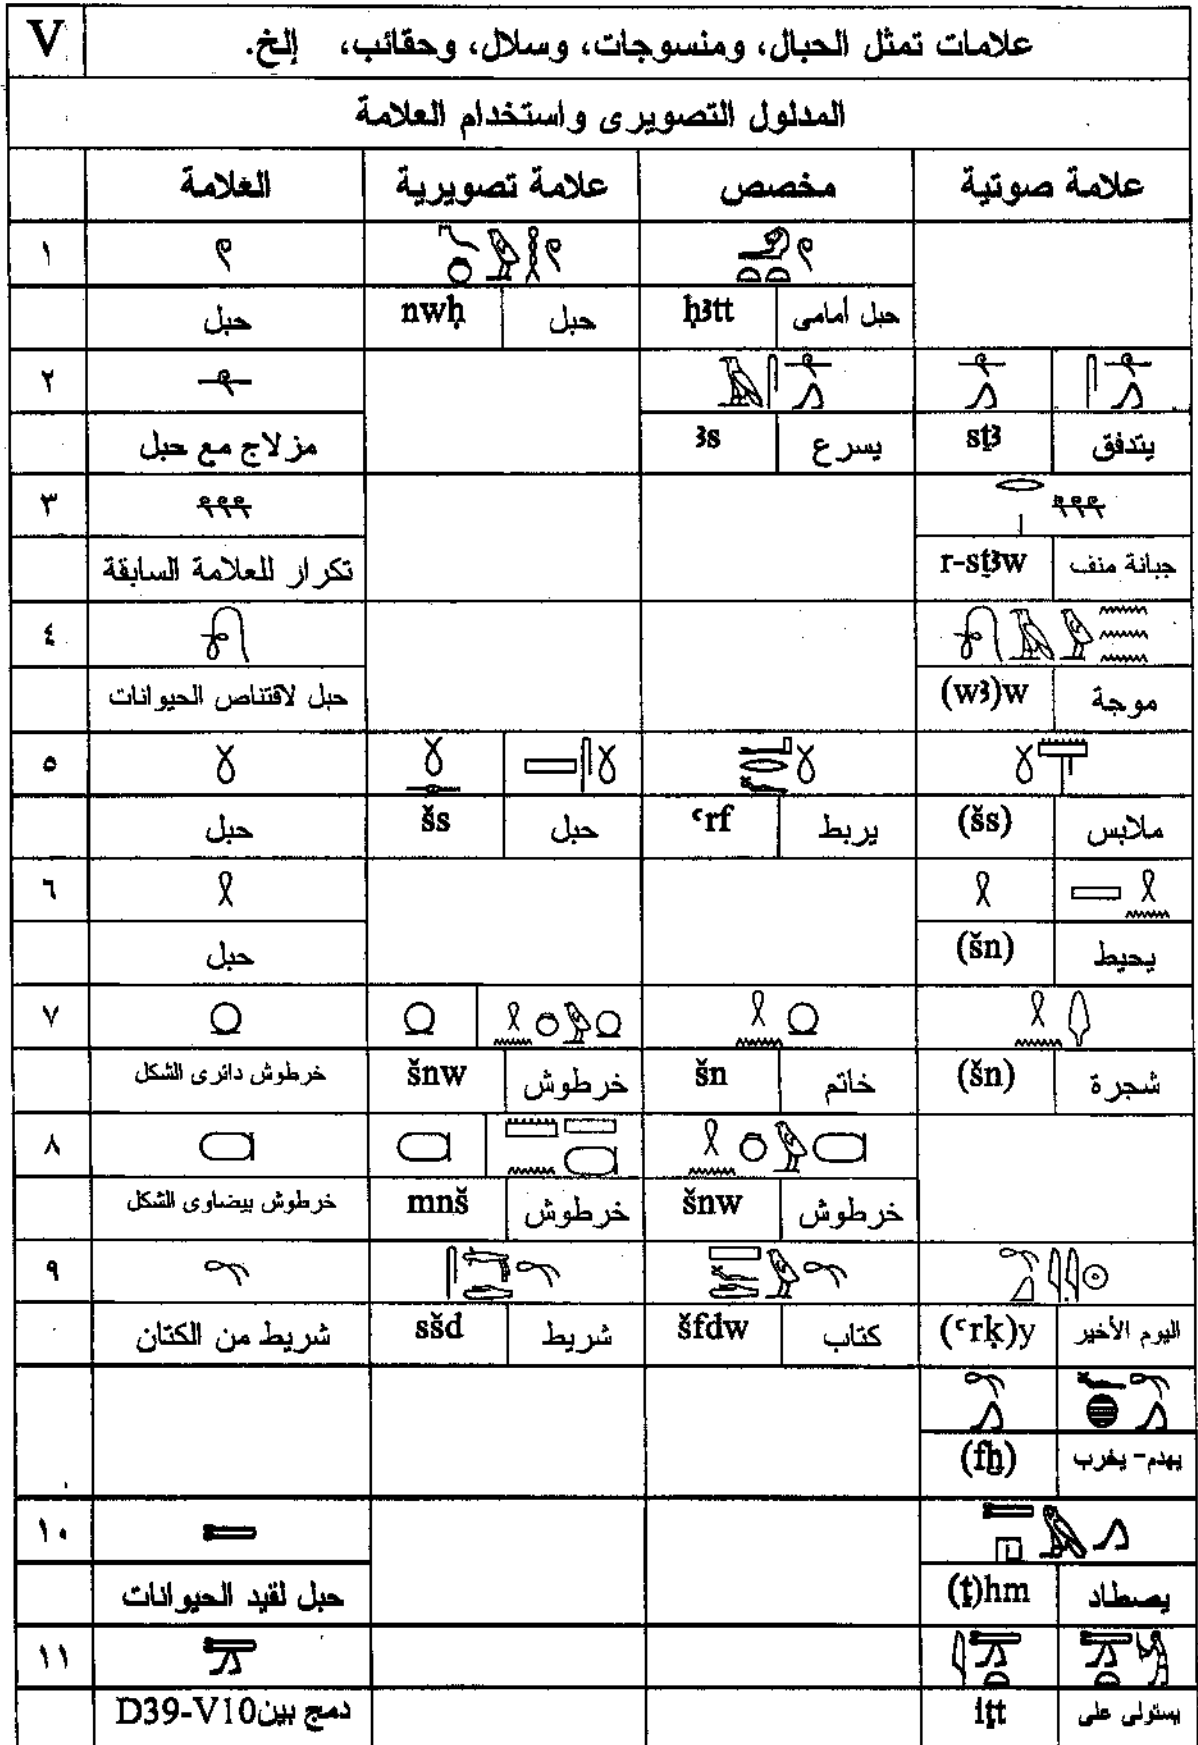 V علامات تمثل الحبال، ومنسوجات، وسلال، وحقائب، إلخ.
المدلول التصويرى واستخدام العلامة
العلامة علامة تصويرية مخصص علامة صوتية
١
حبل nwḥ حبل ḥꜣtt حبل أمامى
٢
مزلاج مع حبل ꜣs يسرع sṯꜣ يتدفق
٣
تكرار للعلامة السابقة r-sṯꜣw جبانة منف
٤
حبل لاقتناص الحيوانات (wꜣ)w موجة
٥
حبل šs حبل ꜥrf يربط (šs) ملابس
٦
حبل (šn) يحيط
٧
خرطوش دائرى الشكل šnw خرطوش šn خاتم (šn) شجرة
٨
خرطوش بيضاوى الشكل mnš خرطوش šnw خرطوش
٩
شريط من الكتان sšd شريط šfdw كتاب (ꜥrḳ)y اليوم الأخير
(fḫ) يهدم- يخرب
١٠
حبل لقيد الحيوانات (ṯ)hm يصطاد
١١
دمج بين D39-V10 iṯt يستولى على